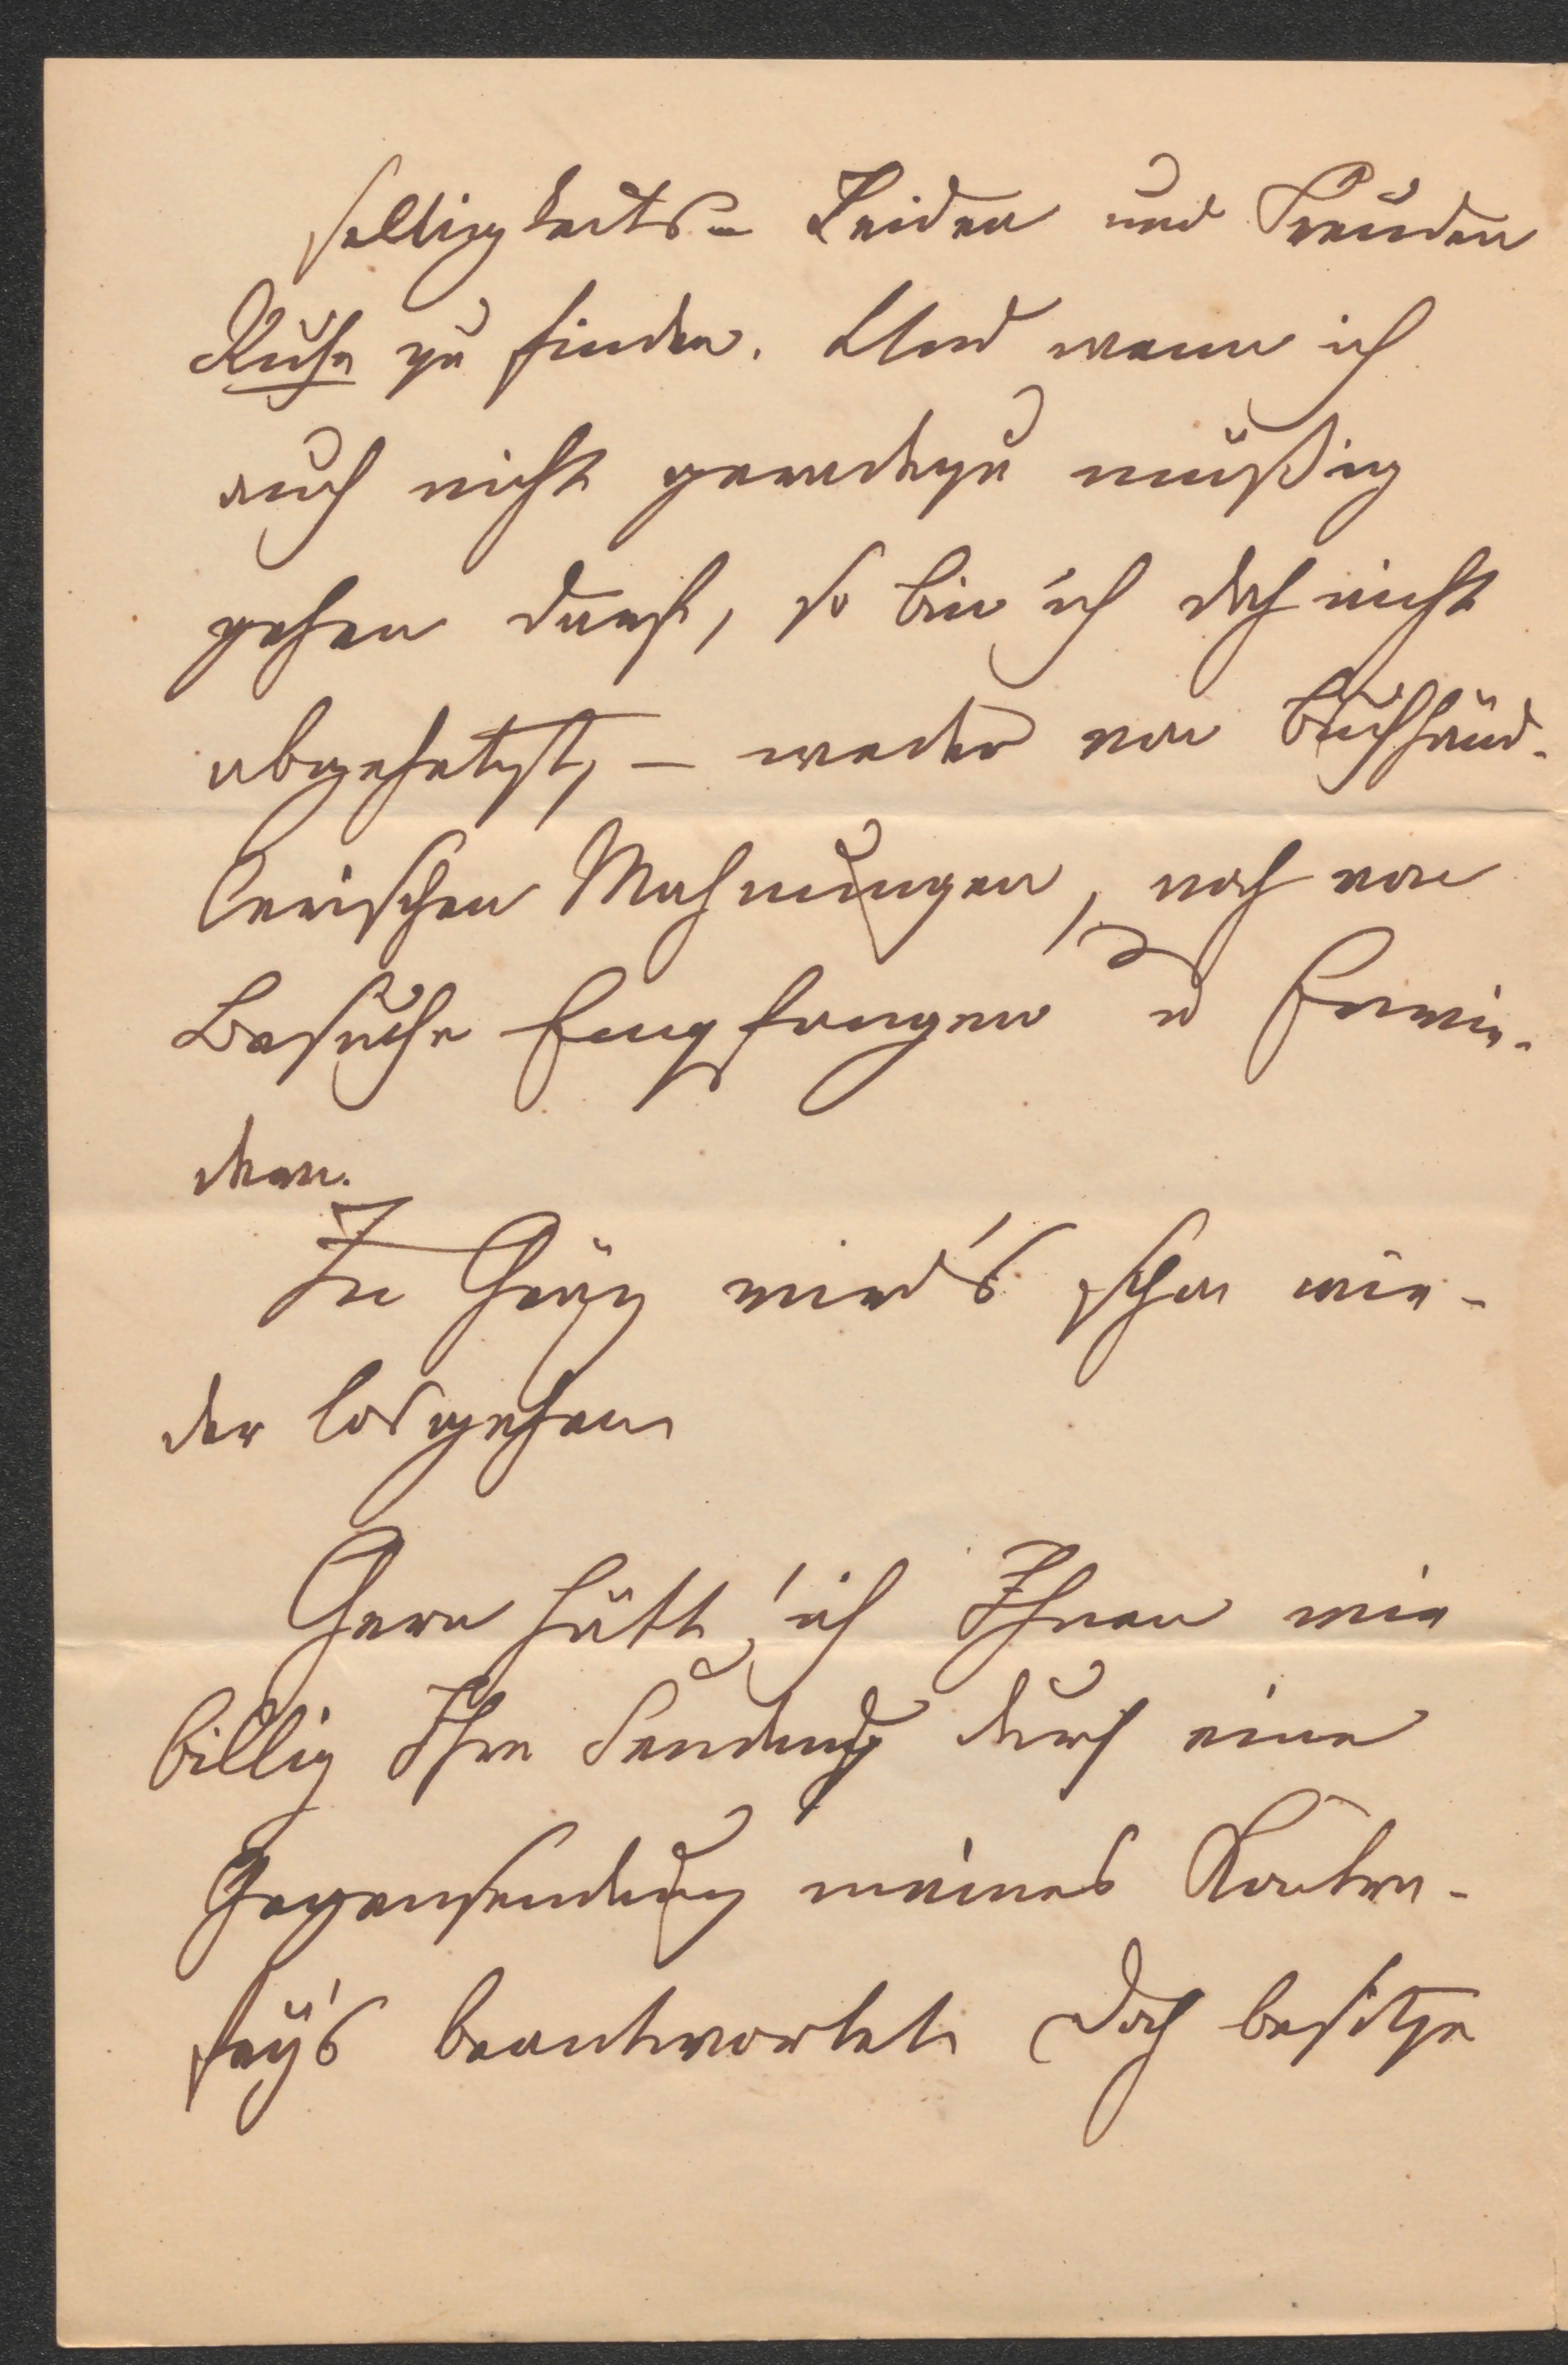 selligkeits- Leiden und Freuden
Ruhe zu finden. Und wenn ich
auch nicht geradezu müßig
gehen darf, so bin ich doch nicht
abgehetzt, – weder von buchhänd-
lerischen Mahnungen, noch von
Besuche Empfangen u Erwie-
dern.
In Graz wird's schon wie-
der losgehen
Gern hätt' ich Ihnen wie
billig Ihre Sendung durch eine
Gegensendung meines Konter-
fey's beantwortet. Doch besitze